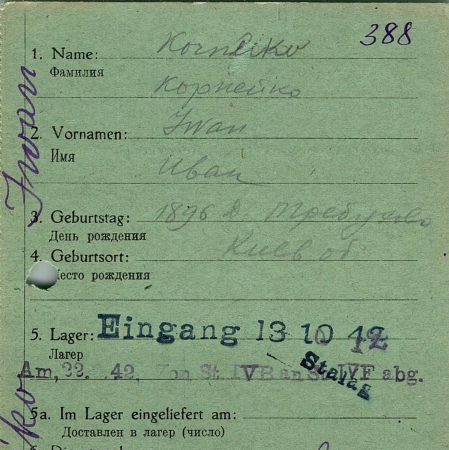 388
1. Name: Korneiko
Фамилия
Корнейко
2. Vornamen: Iwan
Имя
Иван
3. Geburtstag: 1896 Д. Требухово
День рождения
4. Geburtsort: Киев об
Место рождения
5. Lager: Eingang 13 10 42
Лагер
Stalag
Am, 22. 9. 42, von St. IV B an St. IV F abg.
5a. Im Lager eingeliefert am:
Доставлен в лагер (число)
Iwan
ko